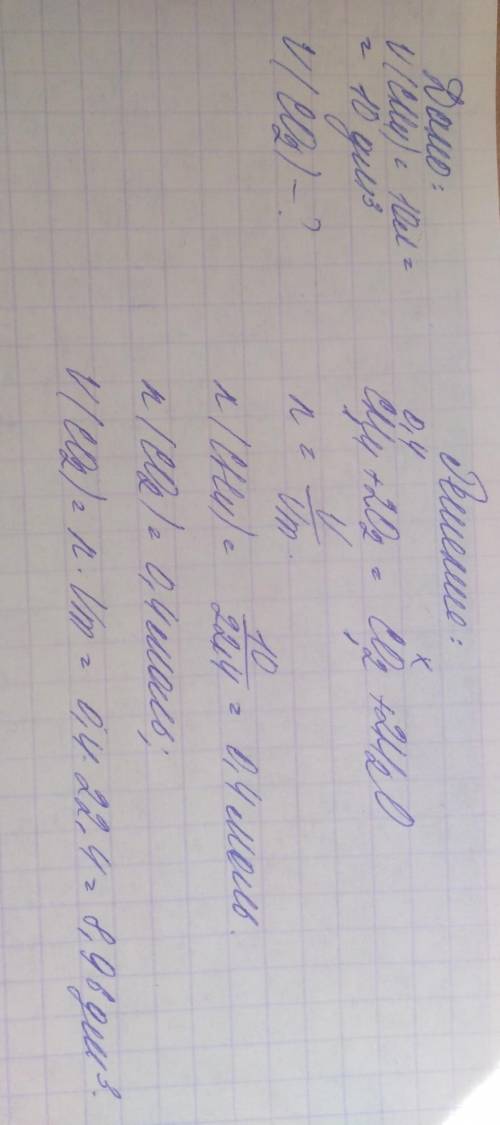 Дано:
V(CH4) = 10л =
= 10 дм³
V(CO2) - ?
Решение:
0,4 x
CH4 + 2O2 = CO2 + 2H2O
n = V/Vm.
n(CH4) = 10/22,4 = 0,4 моль.
n(CO2) = 0,4 моль;
V(CO2) = n · Vm = 0,4 · 22,4 = 8,96 дм³.